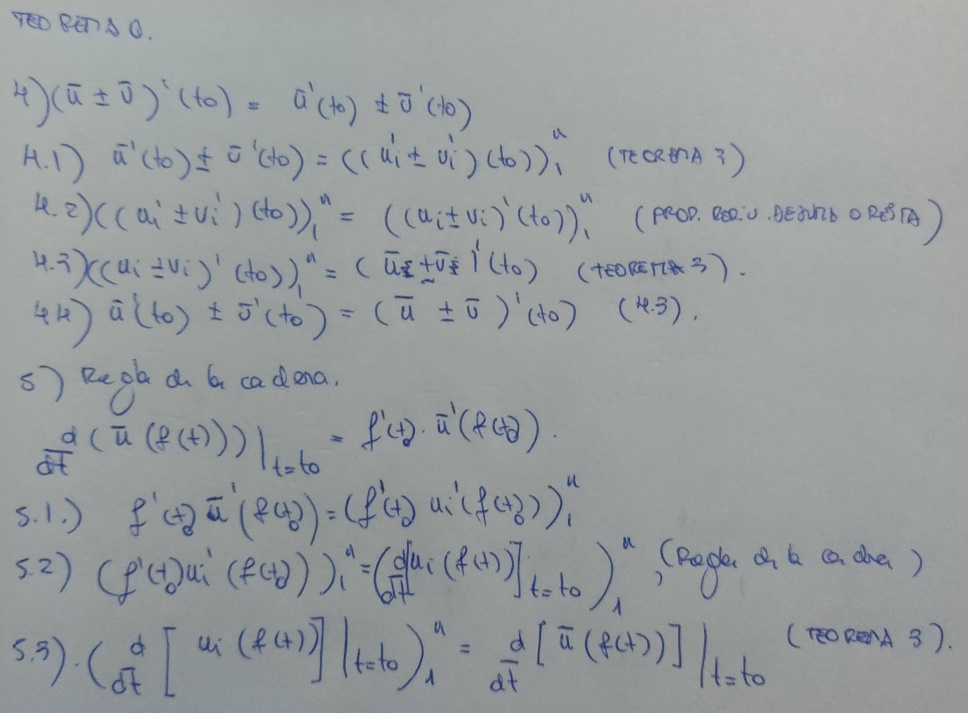 TEOREMA 6.
4) (ū ± v̄)'(to) = ū'(to) ± v̄'(to)
4.1) ū'(to) ± v̄'(to) = ((ui' ± vi')(to))₁ⁿ (TEOREMA 3)
4.2) ((ui' ± vi')(to))₁ⁿ = ((ui ± vi)'(to))₁ⁿ (PROP. DERIV. DE SUMA O RESTA)
4.3) ((ui ± vi)'(to))₁ⁿ = (ū ± v̄)'(to) (TEOREMA 3).
4.4) ū'(to) ± v̄'(to) = (ū ± v̄)'(to) (4.3).
5) Regla de la cadena.
d/dt (ū(f(t)))|t=to = f'(to). ū'(f(to)).
5.1.) f'(to) ū'(f(to)) = (f'(to) ui'(f(to)))₁ⁿ
5.2) (f'(to) ui'(f(to)))₁ⁿ = (d/dt [ui(f(t))]t=to)₁ⁿ, (Regla de la cadena)
5.3). (d/dt [ui(f(t))]|t=to)₁ⁿ = d/dt [ū(f(t))]|t=to (TEOREMA 3).